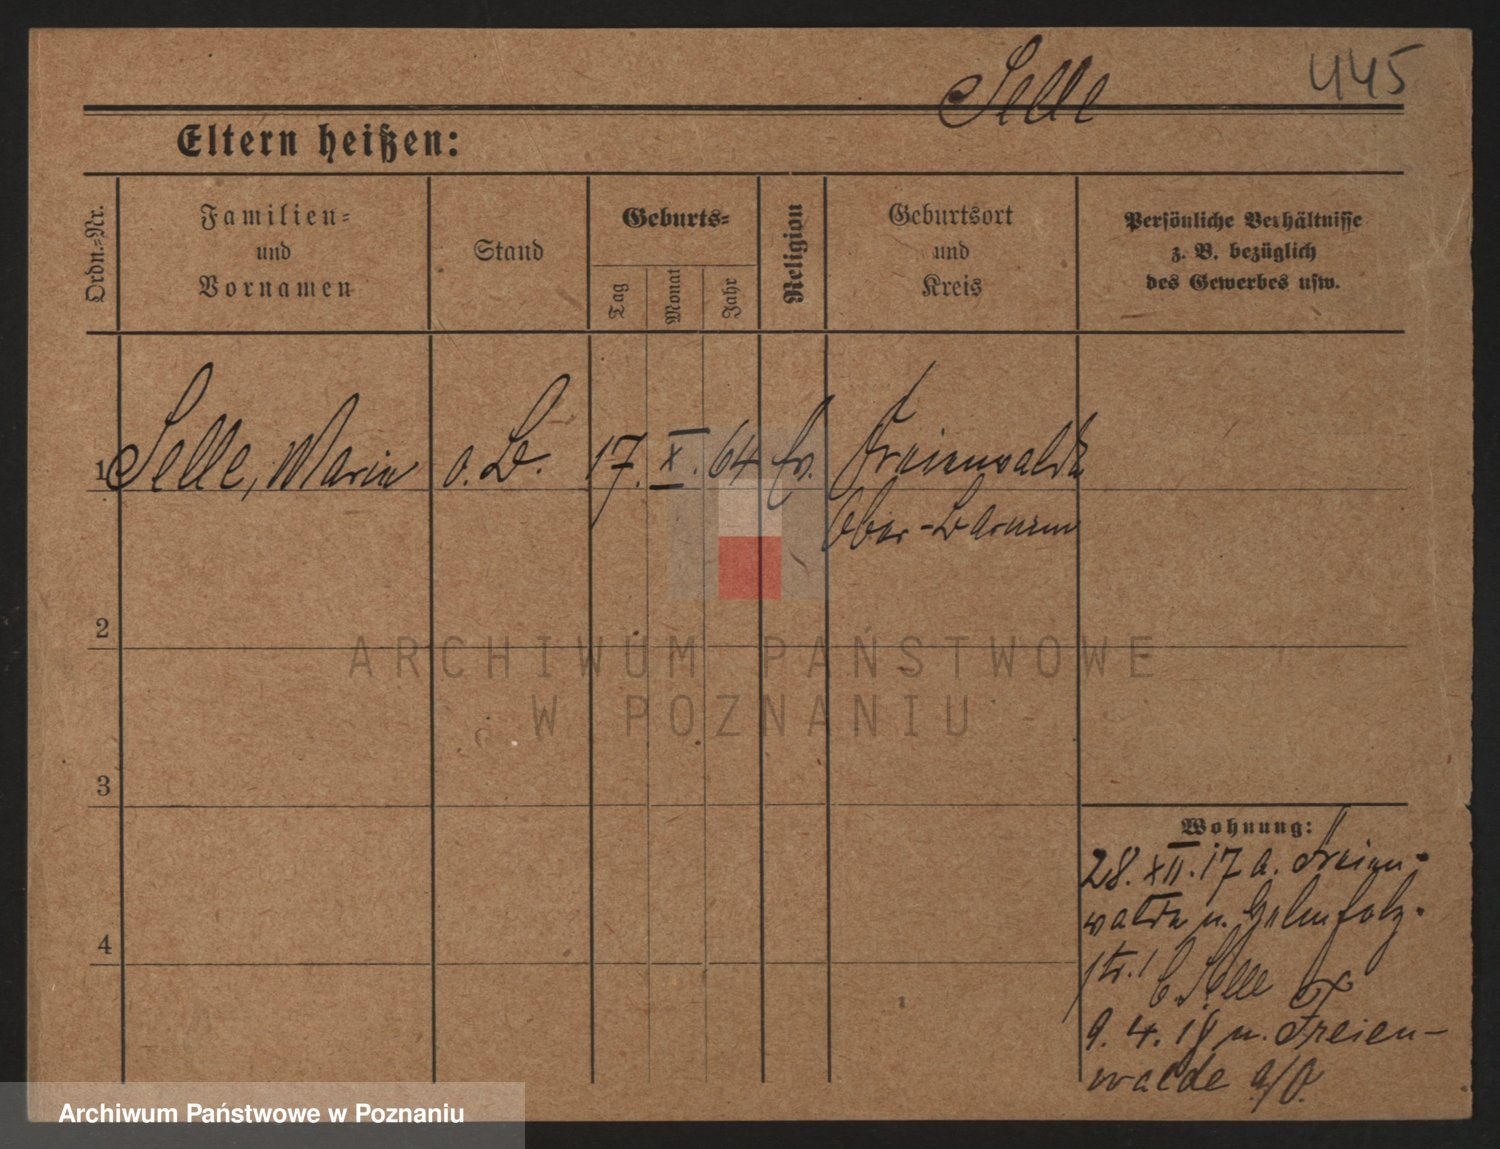 Selle 445
Eltern heißen:
Ordn.=Nr.
Familien=
und
Vornamen
Stand
Geburts=
Tag
Monat
Jahr
Religion
Geburtsort
und
Kreis
Persönliche Verhältnisse
z. B. bezüglich
des Gewerbes usw.
1 Selle, Marie o. B. 17. X. 64 Ev. Freienwalde
Ober-Barnim
2
3
4
Wohnung:
28. XII. 17 a. Freien-
walde n.
str. 1 b. Selle
9. 4. 18 n. Freien-
walde a/O.
ARCHIWUM PAŃSTWOWE
W POZNANIU
Archiwum Państwowe w Poznaniu